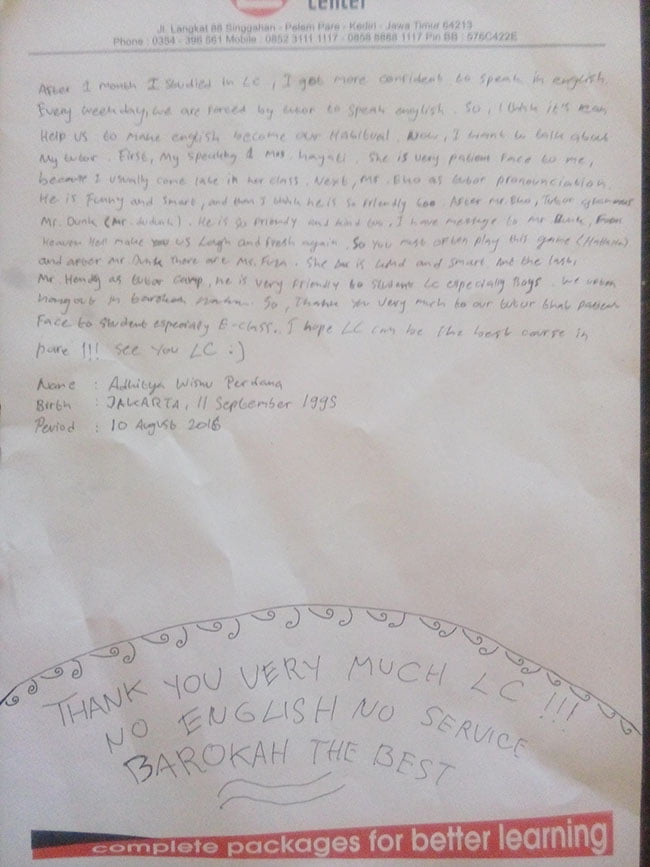 Center
Jl. Langkat 88 Singgahan - Pelem Pare - Kediri - Jawa Timur 64213
Phone : 0354 - 396 561 Mobile : 0852 3111 1117 - 0858 6868 1117 Pin BB : 576C422E
After 1 month I studied in LC, I get more confident to speak in english.
Every weekday, we are forced by tutor to speak english. So, I think it's
Help us to make english become our Habitual. Now, I want to talk about
My tutor. First, My speaking Mrs. hayati. She is very patient face to me,
because I usually come late in her class. Next, Mr. Eko as tutor pronounciation.
He is Funny and smart, and then I think he is so friendly too. After mr. Eko, Tutor grammar
Mr. Dunk (Mr. ). He is so friendly and kind too. I have message to Mr Dunk,
Heaven Hell make you us Laugh and fresh again. So you must often play this game
and after Mr. Dunk there are Ms. . She too is kind and smart. And the last,
Mr. Hendy as tutor camp, he is very friendly to students LC especially Boys. we often
hangout in barokah . So, thank you very much to our tutor that patient
Face to student especially E-class. I hope LC can be the best course in
pare !!! see you LC :)
Name : Adhitya Wisnu Perdana
Birth : JAKARTA, 11 September 1995
Period : 10 August 2016
THANK YOU VERY MUCH LC !!!
NO ENGLISH NO SERVICE
BAROKAH THE BEST
complete packages for better learning